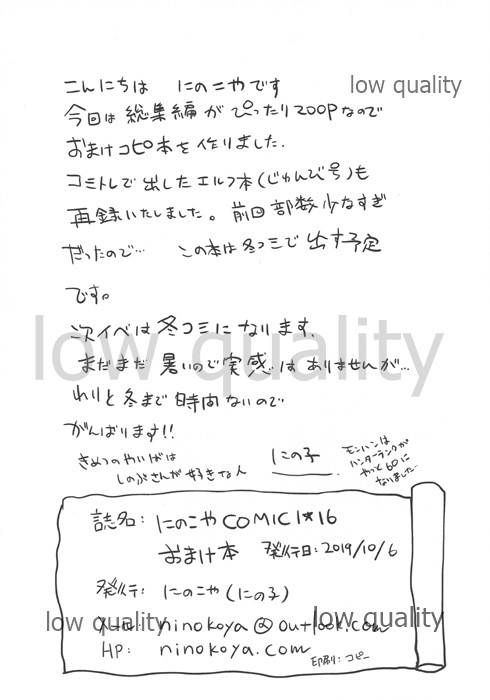 こんにちは にのこやです
low quality
今回は総集編がぴったり200Pなので
おまけコピ本を作りました.
コミトレで出したエルフ本(じゅんび号)も
再録いたしました。前回部数少なすぎ
だったので… この本は冬コミで出す予定
です。
次イベは冬コミになります.
low quality
まだまだ暑いので実感はありませんが…
わりと冬まで時間ないので
がんばります!!
きめつのやいばは
しのぶさんが好きな人
にの子
モンハンは
ハンターランクが
やっと60に
なりました…
誌名: にのこや COMIC1★16
おまけ本 発行日: 2019/10/6
発行: にのこや(にの子)
low quality
low quality
メール: ninokoya@outlook.com
HP: ninokoya.com
印刷: コピー